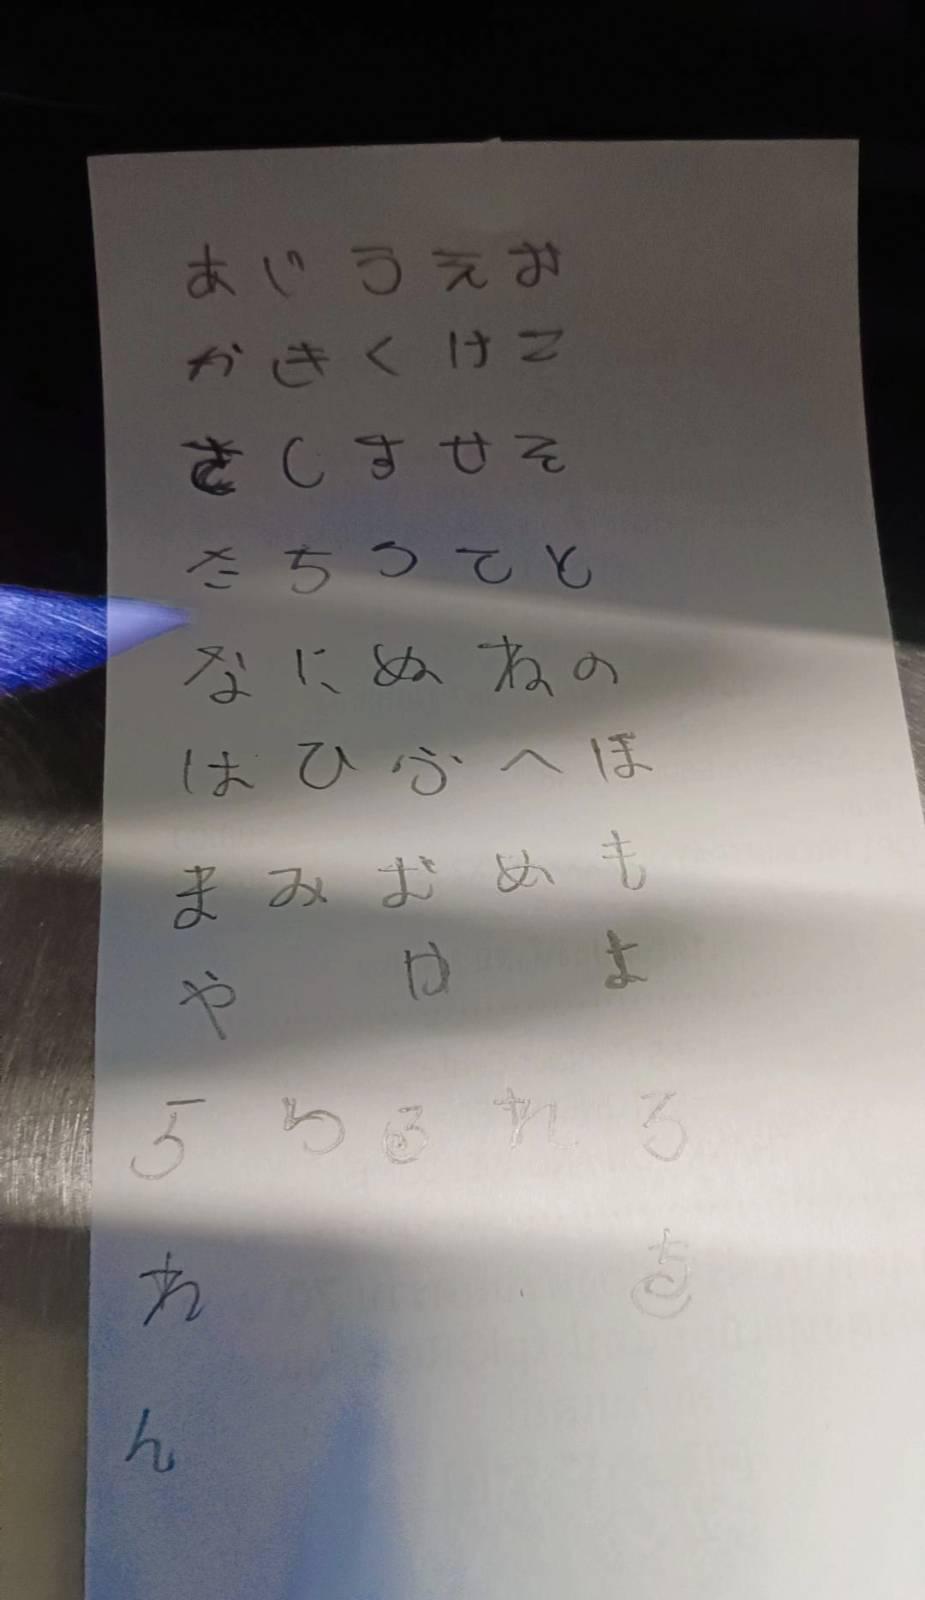 あいうえお
かきくけこ
さしすせそ
たちつてと
なにぬねの
はひふへほ
まみむめも
や ゆ よ
らりるれろ
わ を
ん